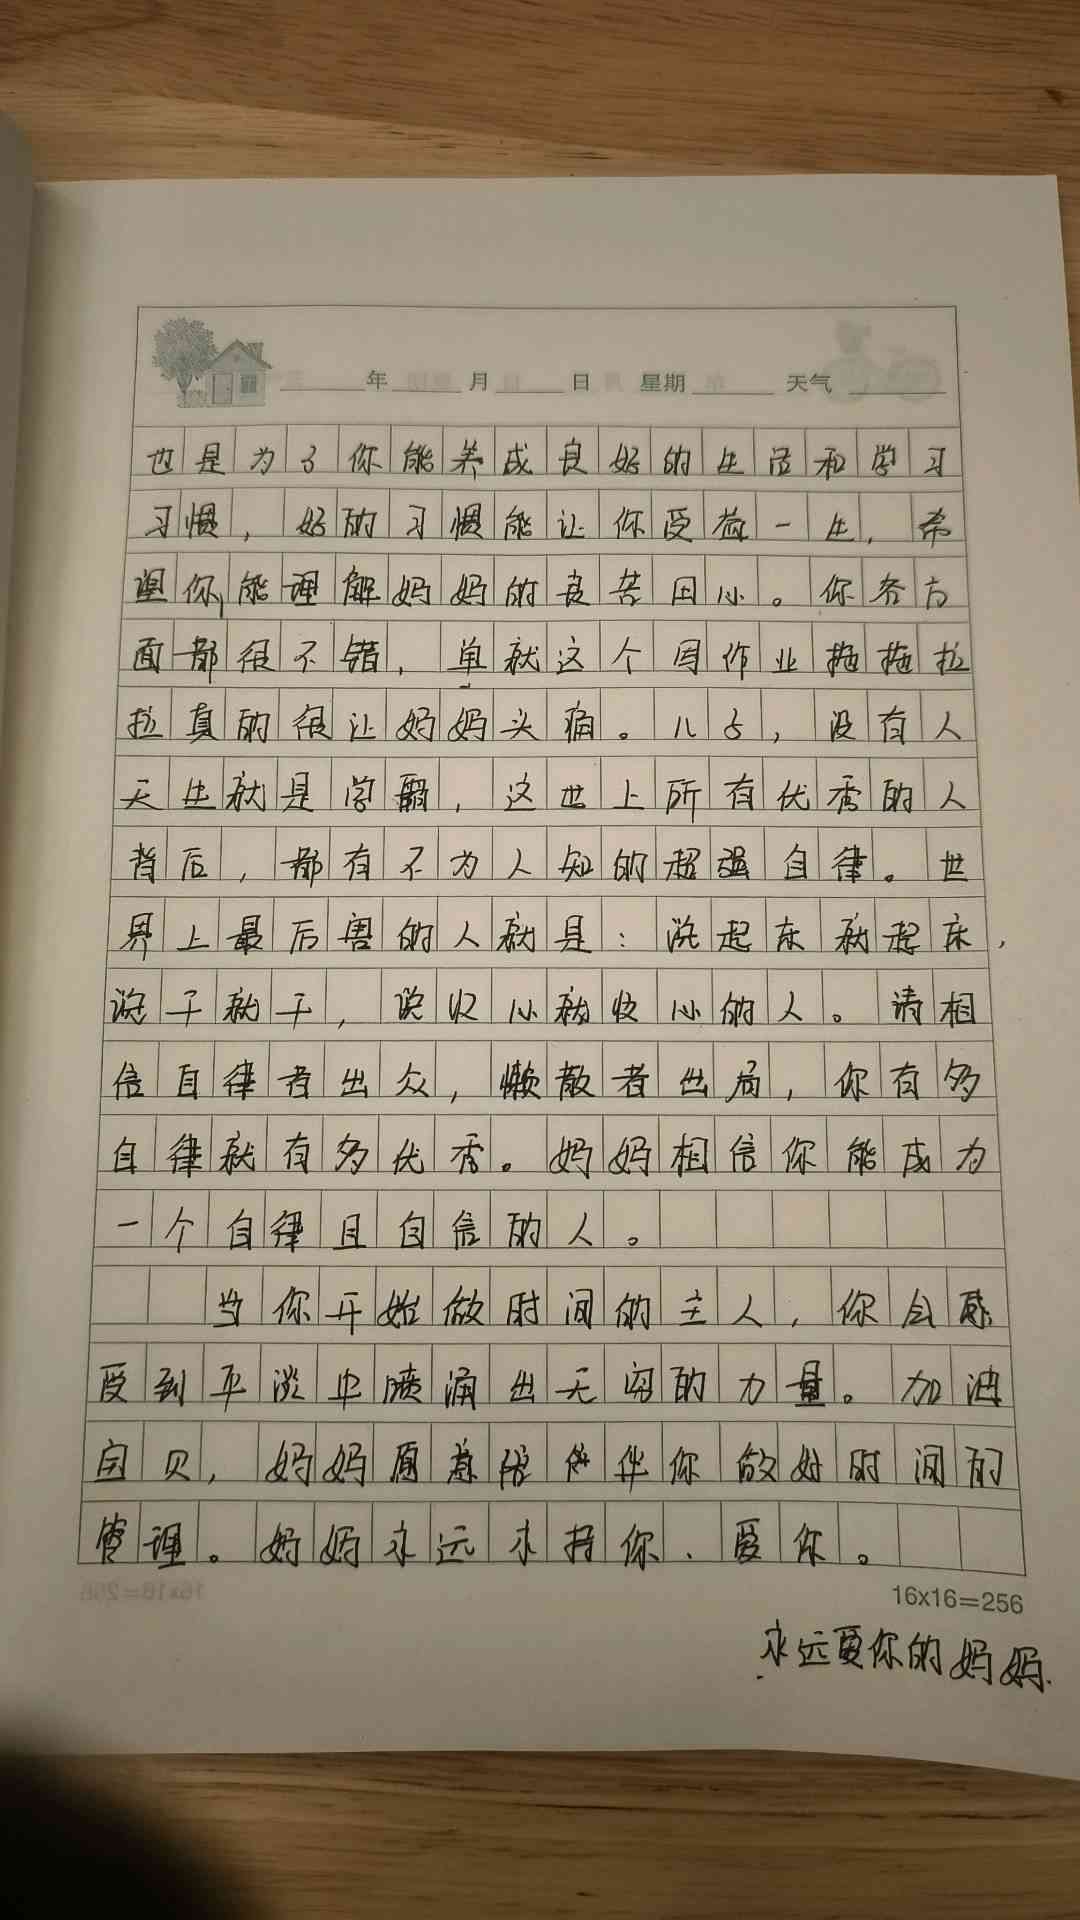 年 月 日 星期 天气
也是为了你能养成良好的生活和学习
习惯，好的习惯能让你受益一生，希
望你能理解妈妈的良苦用心。你各方
面都很不错，单就这个写作业拖拖拉
拉真的很让妈妈头痛。儿子，没有人
天生就是学霸，这世上所有优秀的人
背后，都有不为人知的超强自律。世
界上最厉害的人就是：说起床就起床，
说干就干，说收心就收心的人。请相
信自律者出众，懒散者出局，你有多
自律就有多优秀。妈妈相信你能成为
一个自律且自信的人。
当你开始做时间的主人，你会感
受到平淡中喷涌出无穷的力量。加油
宝贝，妈妈愿意陪伴你做好时间的
管理。妈妈永远支持你、爱你。
16x16=256
永远爱你的妈妈.